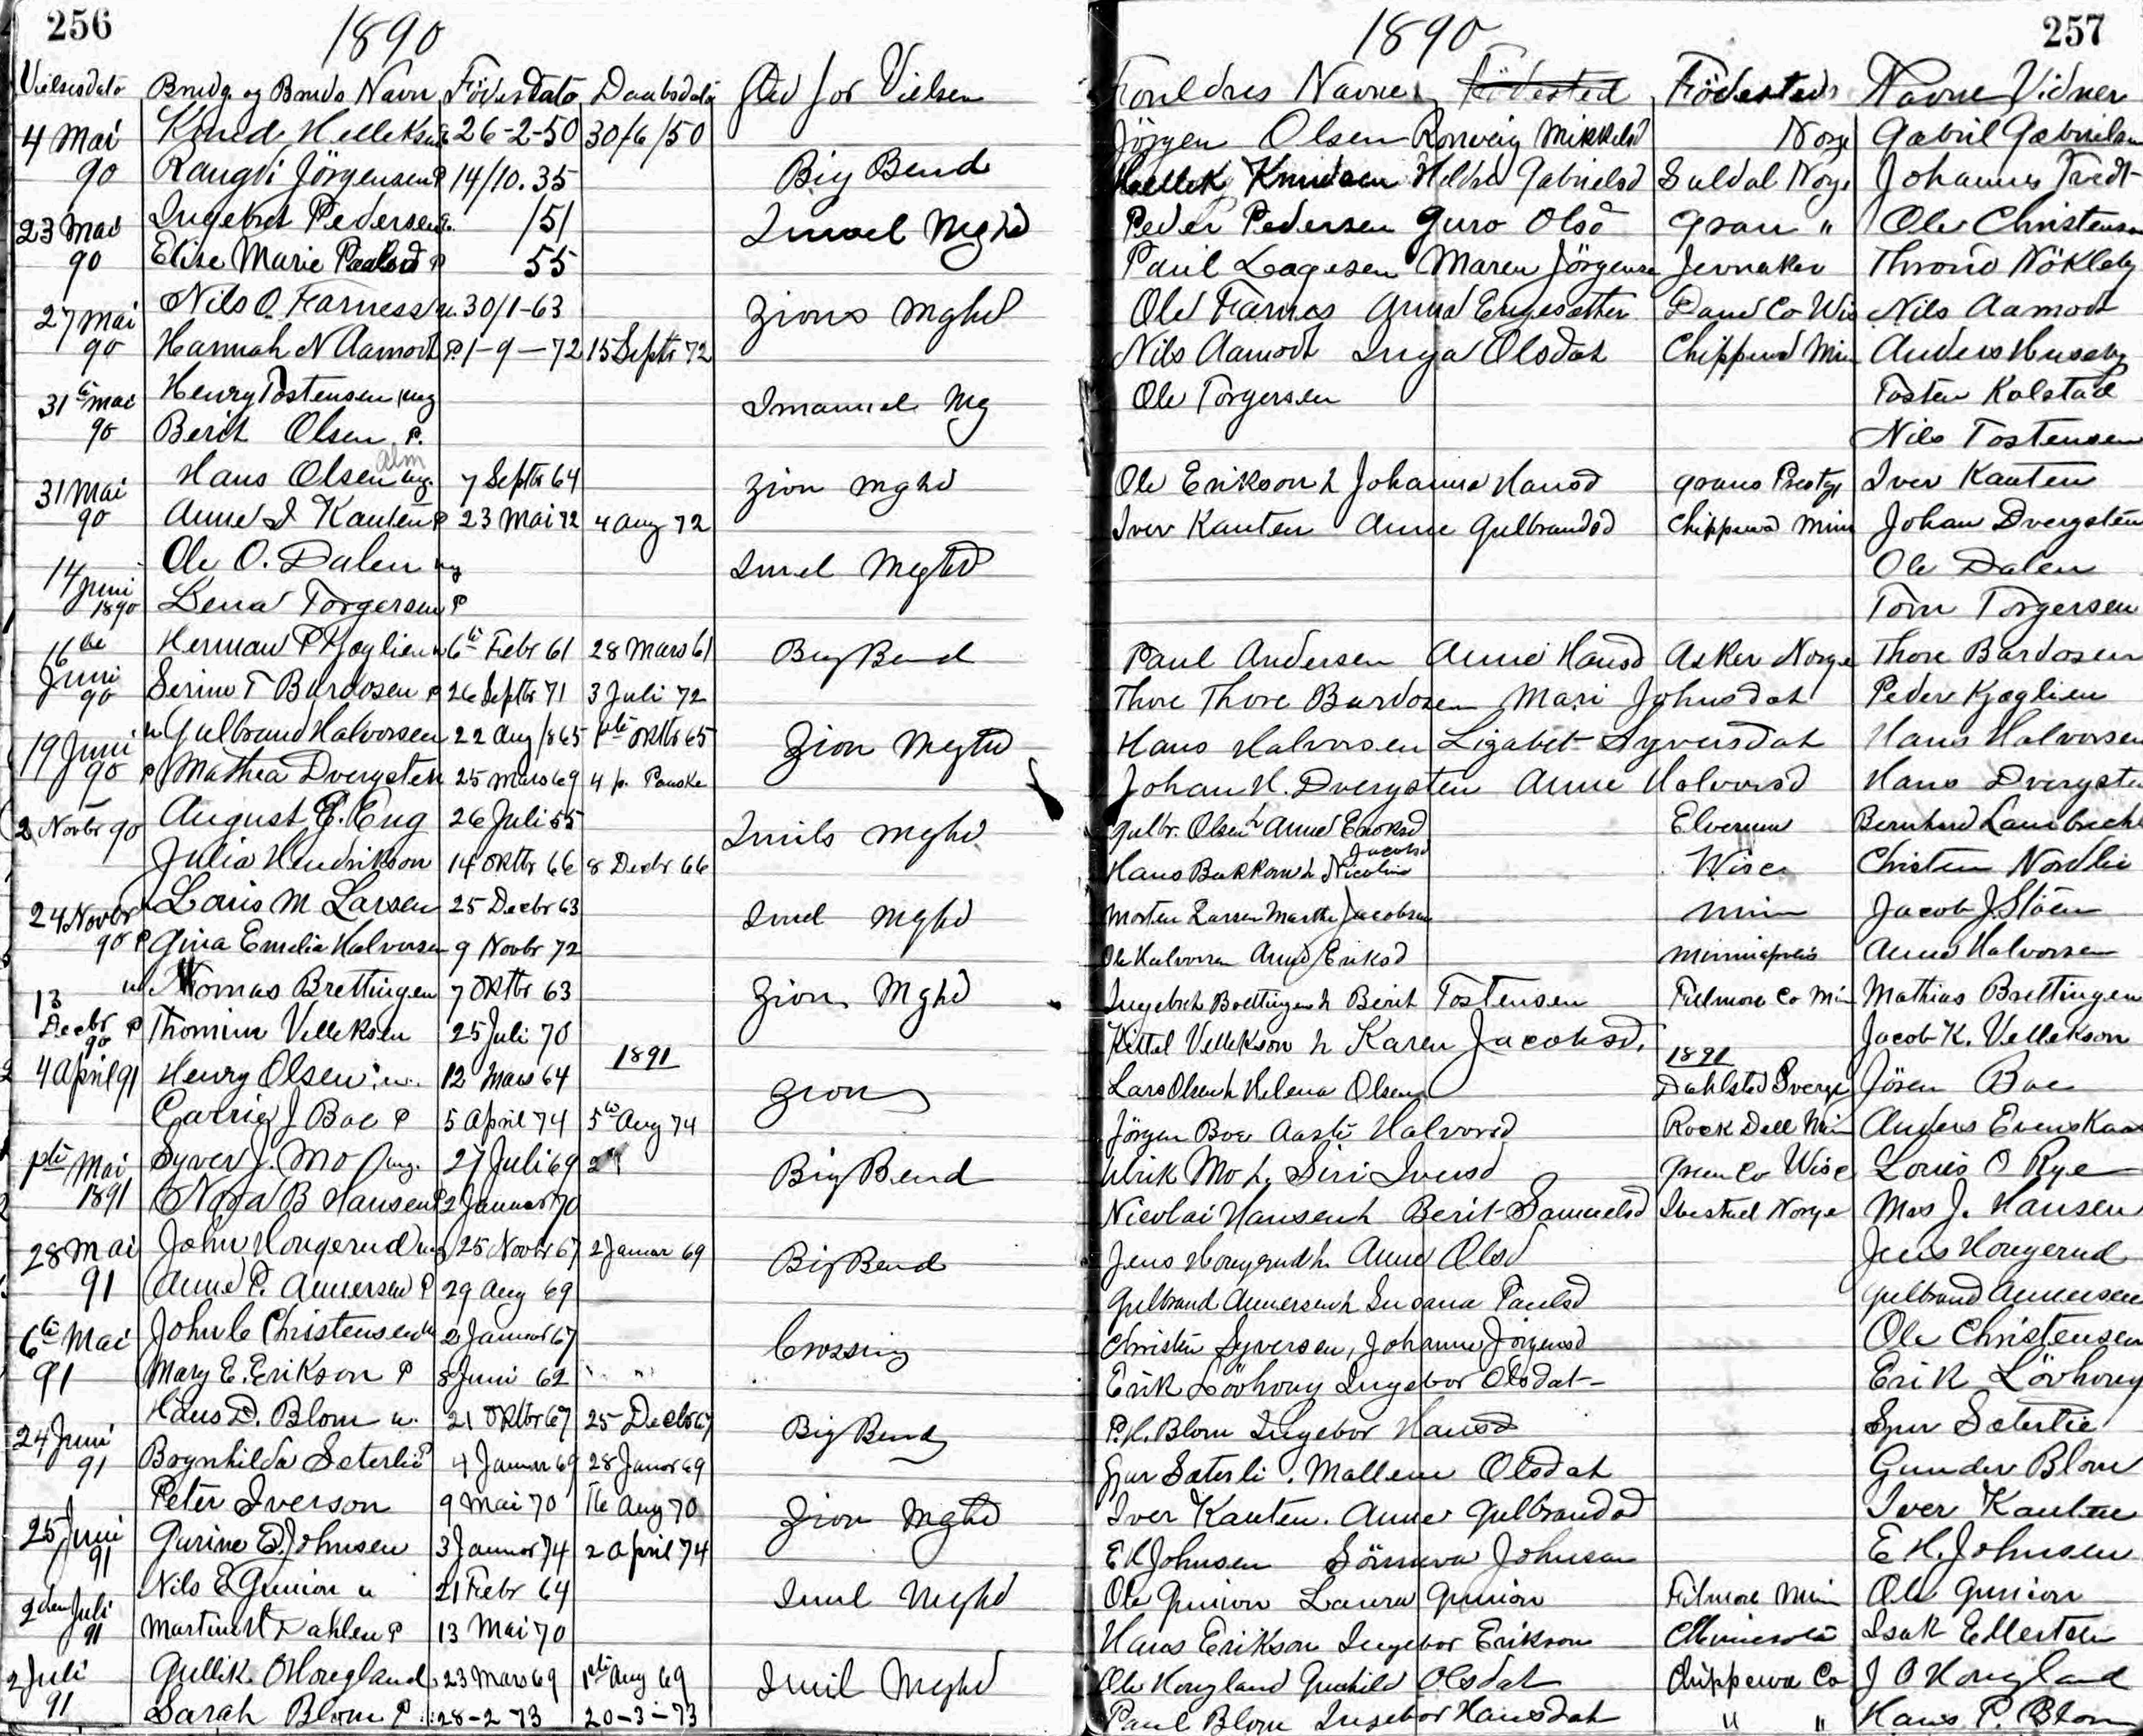 256
1890
Vielsesdato Brudg og Bruds Navn Födesdato Daabsdato Sted for Vielsen
4 Mai 90 Knud Helleksen 26-2-50 30/6/50 Big Bend
Rangdi Jörgensen P 14/10.35
23 Mai 90 Ingebret Pedersen /51 Imael Mghd
Elise Marie Paulsd P 55
27 Mai 90 Nils O. Farness u. 30/1-63 Zions Mghd
Hannah N Aamodt P. 1-9-72 15 Septbr 72
31te Mai 90 Henry Tostensen ung Imanuel Mg
Berit Olsen P.
31 Mai 90 Hans Olsen ung. 7 Septbr 64 Zion Mghd
Alm
Anne I Kanten P 23 Mai 72 4 Aug 72
14 Juni 1890 Ole O. Dalen ug Imel Meghd
Lena Torgersen P
16de Juni 90 Herman P Kjøglien u 6te Febr 61 28 Mars 61 Big Bend
Serine T Bardosen P 26 Septbr 71 3 Juli 72
19 Juni 90 u Gulbrand Halvorsen 22 Aug 1865 1ste Oktbr 65 Zion Meghd
P Mathea Dvergsten 25 Mars 69 4 p. Paaske
2 Novbr 90 August G. Eng 26 Juli 55 Imils Mghd
Julia Hendrikson 14 Oktbr 66 8 Decbr 66
24 Novbr 90 Louis M Larsen 25 Decbr 63 Imel Mghd
P Gina Emelia Halvorsen 9 Novbr 72
13 Decbr 90 u Thomas Brettingen 7 Oktbr 63 Zion Mghd
P Thomine Velleksen 25 Juli 70
1891
4 April 91 Henry Olsen u. 12 Mars 64 Zion
Carrie J Boe P 5 April 74 5te Aug 74
1ste Mai 1891 Syver J. Mo ung. 27 Juli 69 Big Bend
Nora B Hansen P 2 Januar 70
28 Mai 91 John Hougerud ug 25 Novbr 67 2 Januar 69 Big Bend
Anne P. Amersen P 29 Aug 69
6te Mai 91 John C Christensen u 2 Januar 67 Crossing
Mary E. Erikson P 8 Juni 62 " "
24 Juni 91 Hans D. Blom u. 21 Oktbr 67 25 Decbr 67 Big Bend
Bognhilda Sæterlie P 4 Januar 69 28 Januar 69
25 Juni 91 Peter Iverson 9 Mai 70 16 Aug 70 Zion Mghd
Gurine E. Johnsen 3 Januar 74 2 April 74
2den Juli 91 Nils E Gunion u 21 Febr 64 Imul Mghd
Martin H Dahlen P 13 Mai 70
2 Juli 91 Gullik O Hougland 23 Mars 69 1ste Aug 69 Imil Meghd
Sarah Blom P. 28-2 73 20-3-73
257
1890
Forældres Navne Födested Födesteds Navne Vidner
Jörgen Olsen Ronveig Mikkelsd Norge Gabriel Gabrielsen
Hellek Knudsen Helche Gabrielsd Suldal Norge Johannes Tvedt
Peder Pedersen Guro Olsd Gran " Ole Christensen
Paul Lagesen Maren Jörgensen Jevnaker Throno Nökleby
Ole Farnes Anna Engesether Dane Co Wis Nils Aamodt
Nils Aamodt Inga Olsdat Chippewa Min Anders Huseby
Ole Torgersen Tosten Kolstad
Nils Tostensen
Ole Erikson h Johanna Hansd Grans Prestgj Iver Kanten
Iver Kanten Anne Gulbrandsd Chippewa Min Johan Dvergsten
Ole Dalen
Tom Torgersen
Paul Andersen Anne Hansd Asker Norge Thore Bardosen
Thore Thore Bardosen Mari Johnsdat Peder Kjøglien
Hans Halvorsen Lizabet Syversdat Hans Halvorsen
Johan H. Dvergsten Anne Halvorsd Hans Dvergsten
Gulbr. Olsen h Anne Enoksd Elverum Bernhard Lambrecht
Hans Bakken h Nicoline Jacobsd Wisc Christen Nordlie
Morten Larsen Marthe Jacobsen Min Jacob J. Stöen
Ole Halvorsen Anne Eriksd Minniapolis Anne Halvorsen
Ingebreh Brettingen h Berit Tostensen Filmore Co Min Mathias Brettingen
Kittel Vellekson h Karen Jacobsd. Jacob K. Vellekson
1891
Lars Olsen h Helena Olsen Dahlsted Sverge Jören Boe
Jörgen Boe Aaste Halvorsd Rock Dell Min Anders Evenskaas
Ulrik Mo h. Siri Iversd Green Co Wisc Louis O Rye
Nicolai Hansen h Berit Samuelsd Ibestad Norge Mrs J. Hansen
Jens Hougerud h. Anne Olsd Jens Hougerud
Gulbrand Amersen h Susana Paulsd Gulbrand Amersen
Christen Syversen, Johanne Jörgensd Ole Christensen
Erik Lövhoug Ingebor Olsdat Erik Lövhoug
P. H. Blom Ingebor Hansd Spur Sæterlie
Sjur Sæterli. Mallene Olsdat Gunder Blom
Iver Kanten. Anne Gulbrandsd Iver Kanten
E K Johnsen Sörneva Johnsen E K. Johnsen
Ole Gunion Laura Gunion Filmore Min Ole Gunion
Hans Erikson Ingebor Erikson Minnesota Isak Ellertsen
Ole Hougland Gunhild Olsdat Chippewa Co J O Hougland
Paul Blom Ingebor Hansdat " " Hans P Blom